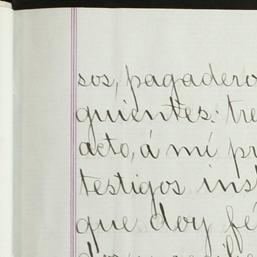 sos, pagadero
guientes: tre
acto, á mi pr
testigos ins
que doy fé